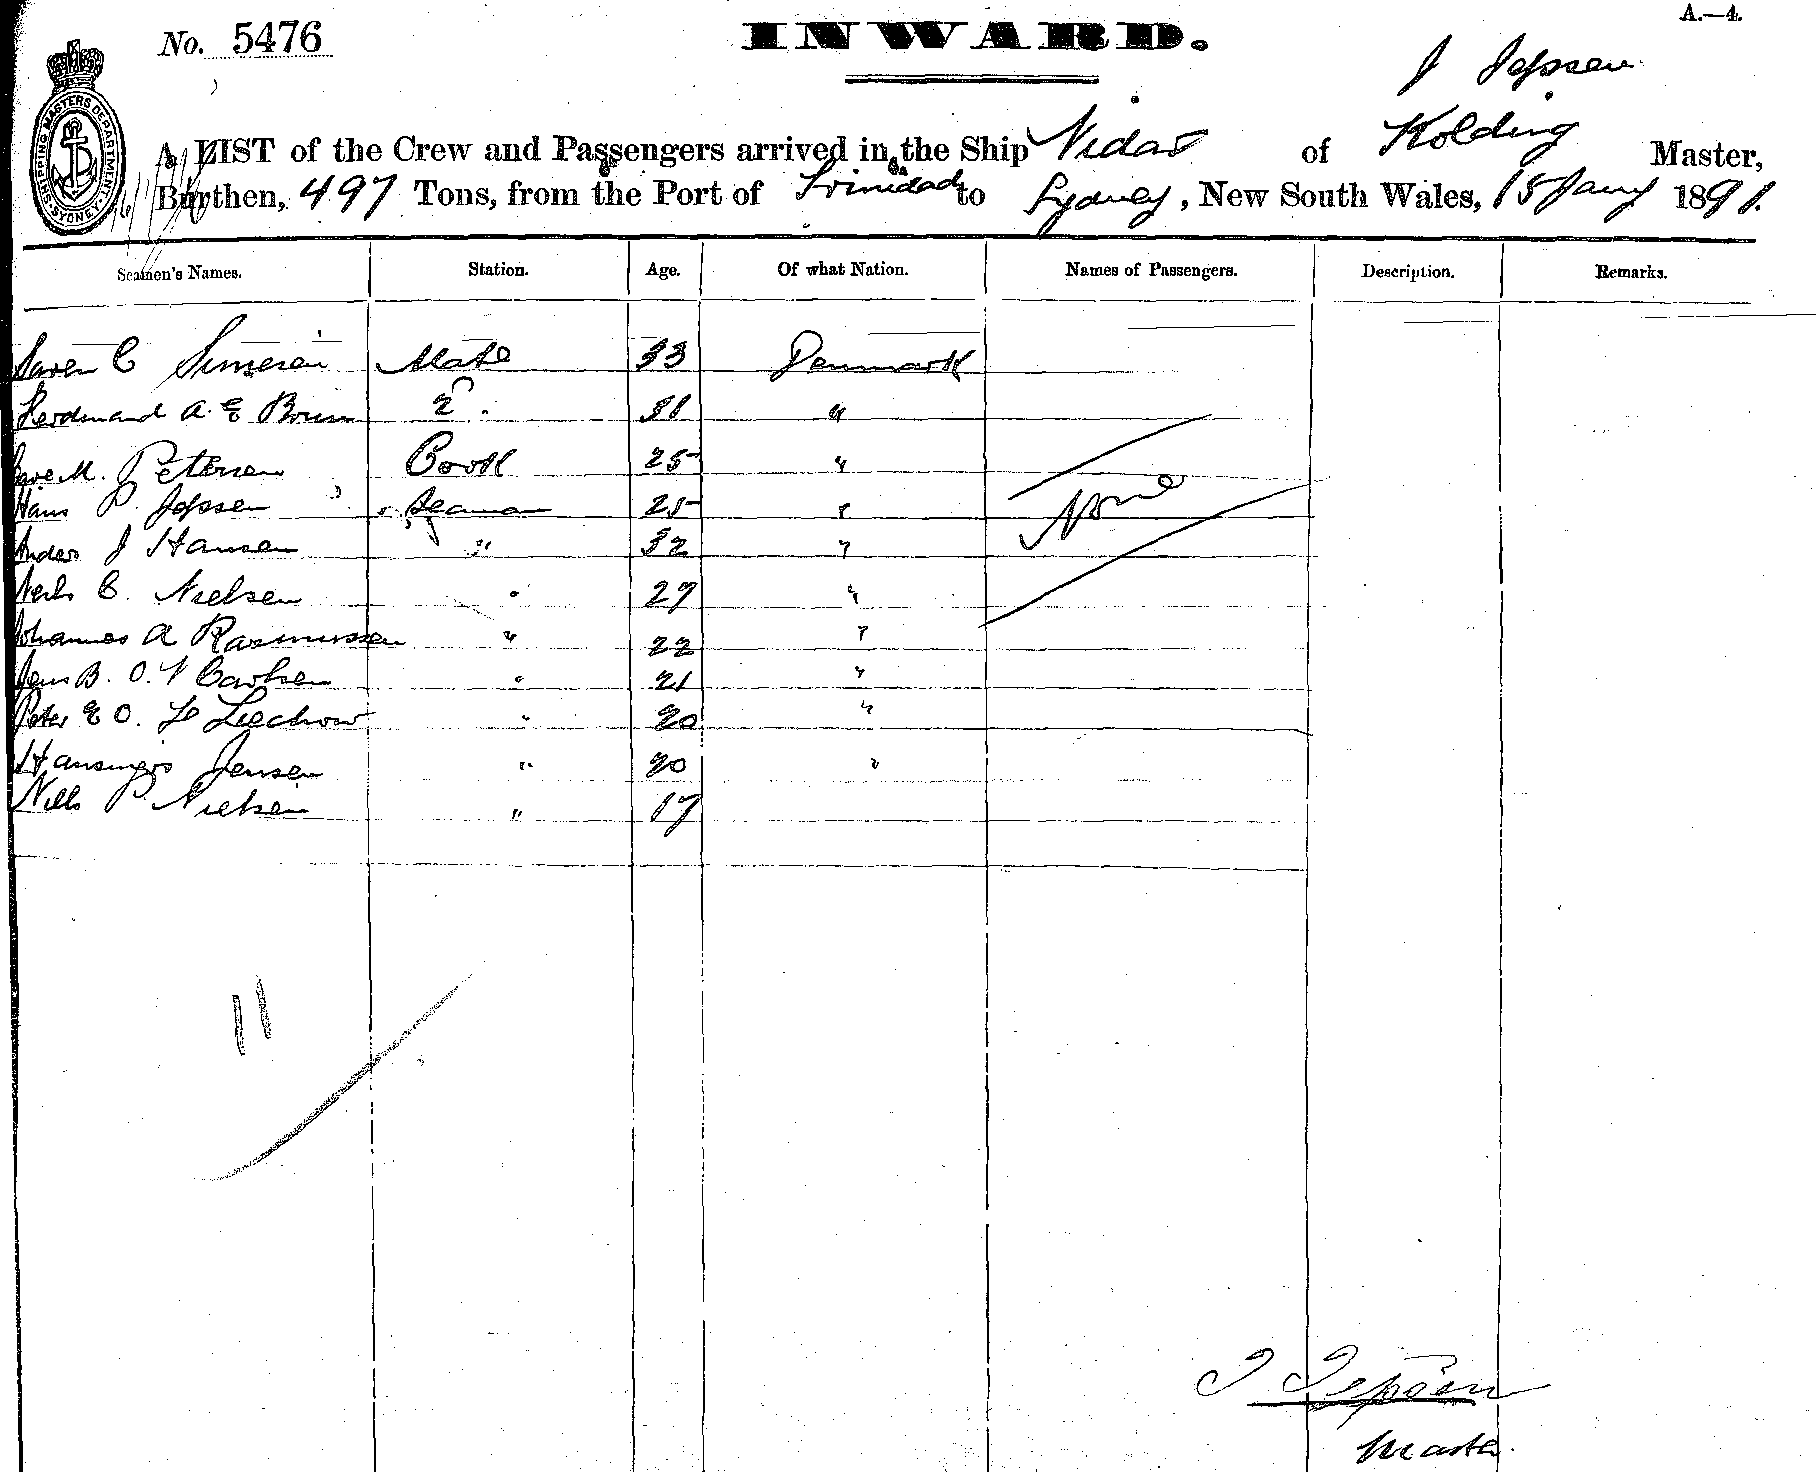 No. 5476
INWARD.
A.—4.
J Jepsen
SHIPPING MASTERS DEPARTMENT SYDNEY
A LIST of the Crew and Passengers arrived in the Ship Vidar of Kolding Master,
Burthen, 497 Tons, from the Port of Trinidad to Sydney, New South Wales, 15 Jany 1891.
Seamen's Names. Station. Age. Of what Nation. Names of Passengers. Description. Remarks.
Soren C Simesen Mate 33 Denmark
Ferdinand A. E Bruun 2 31 "
M. Petersen Cook 25 "
Hans P. Jepsen Seaman 25 " None
Anders J Hansen " 32 "
Neils C. Nielsen " 27 "
Johannes A Rasmussen " 22 "
Jens B. O. F Carlsen " 21 "
Peter E O. Liechow " 20 "
Jensen " 20 "
Nills P. Nielsen " 17
11
J Jepsen
Master